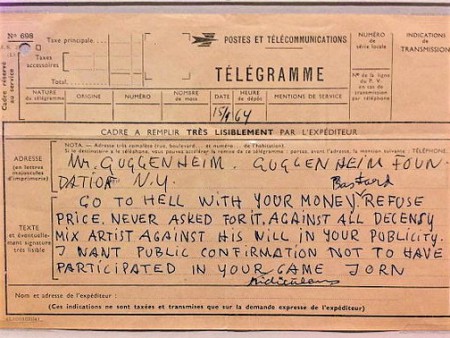 Nº 698
Taxe principale...
Taxes accessoires
Total...
POSTES ET TÉLÉCOMMUNICATIONS
TÉLÉGRAMME
NUMÉRO de série locale:
INDICATIONS DE TRANSMISSION
Nº de la ligne du P. V. en cas de transmission par téléphone
Cadre réservé au service
NATURE du télégramme
ORIGINE
NUMÉRO
NOMBRE de mots
DATE
HEURE de dépôt
MENTIONS DE SERVICE
64
CADRE A REMPLIR TRÈS LISIBLEMENT PAR L'EXPÉDITEUR
ADRESSE (en lettres majuscules d'imprimerie)
NOTA. — Adresse très complète (rue, boulevard... et numéro, de l'habitation)
Mr. GUGGENHEIM. GUGGENHEIM FOUN
DATION N.Y.
Bastard
GO TO HELL WITH YOUR MONEY. REFUSE
PRICE. NEVER ASKED FOR IT. AGAINST ALL DECENSY
MIX ARTIST AGAINST HIS WILL IN YOUR PUBLICITY.
I WANT PUBLIC CONFIRMATION NOT TO HAVE
PARTICIPATED IN YOUR GAME JORN
ridiculous
TEXTE et éventuellement signature très lisible
Nom et adresse de l'expéditeur :
(Ces indications ne sont taxées et transmises que sur la demande expresse de l'expéditeur)